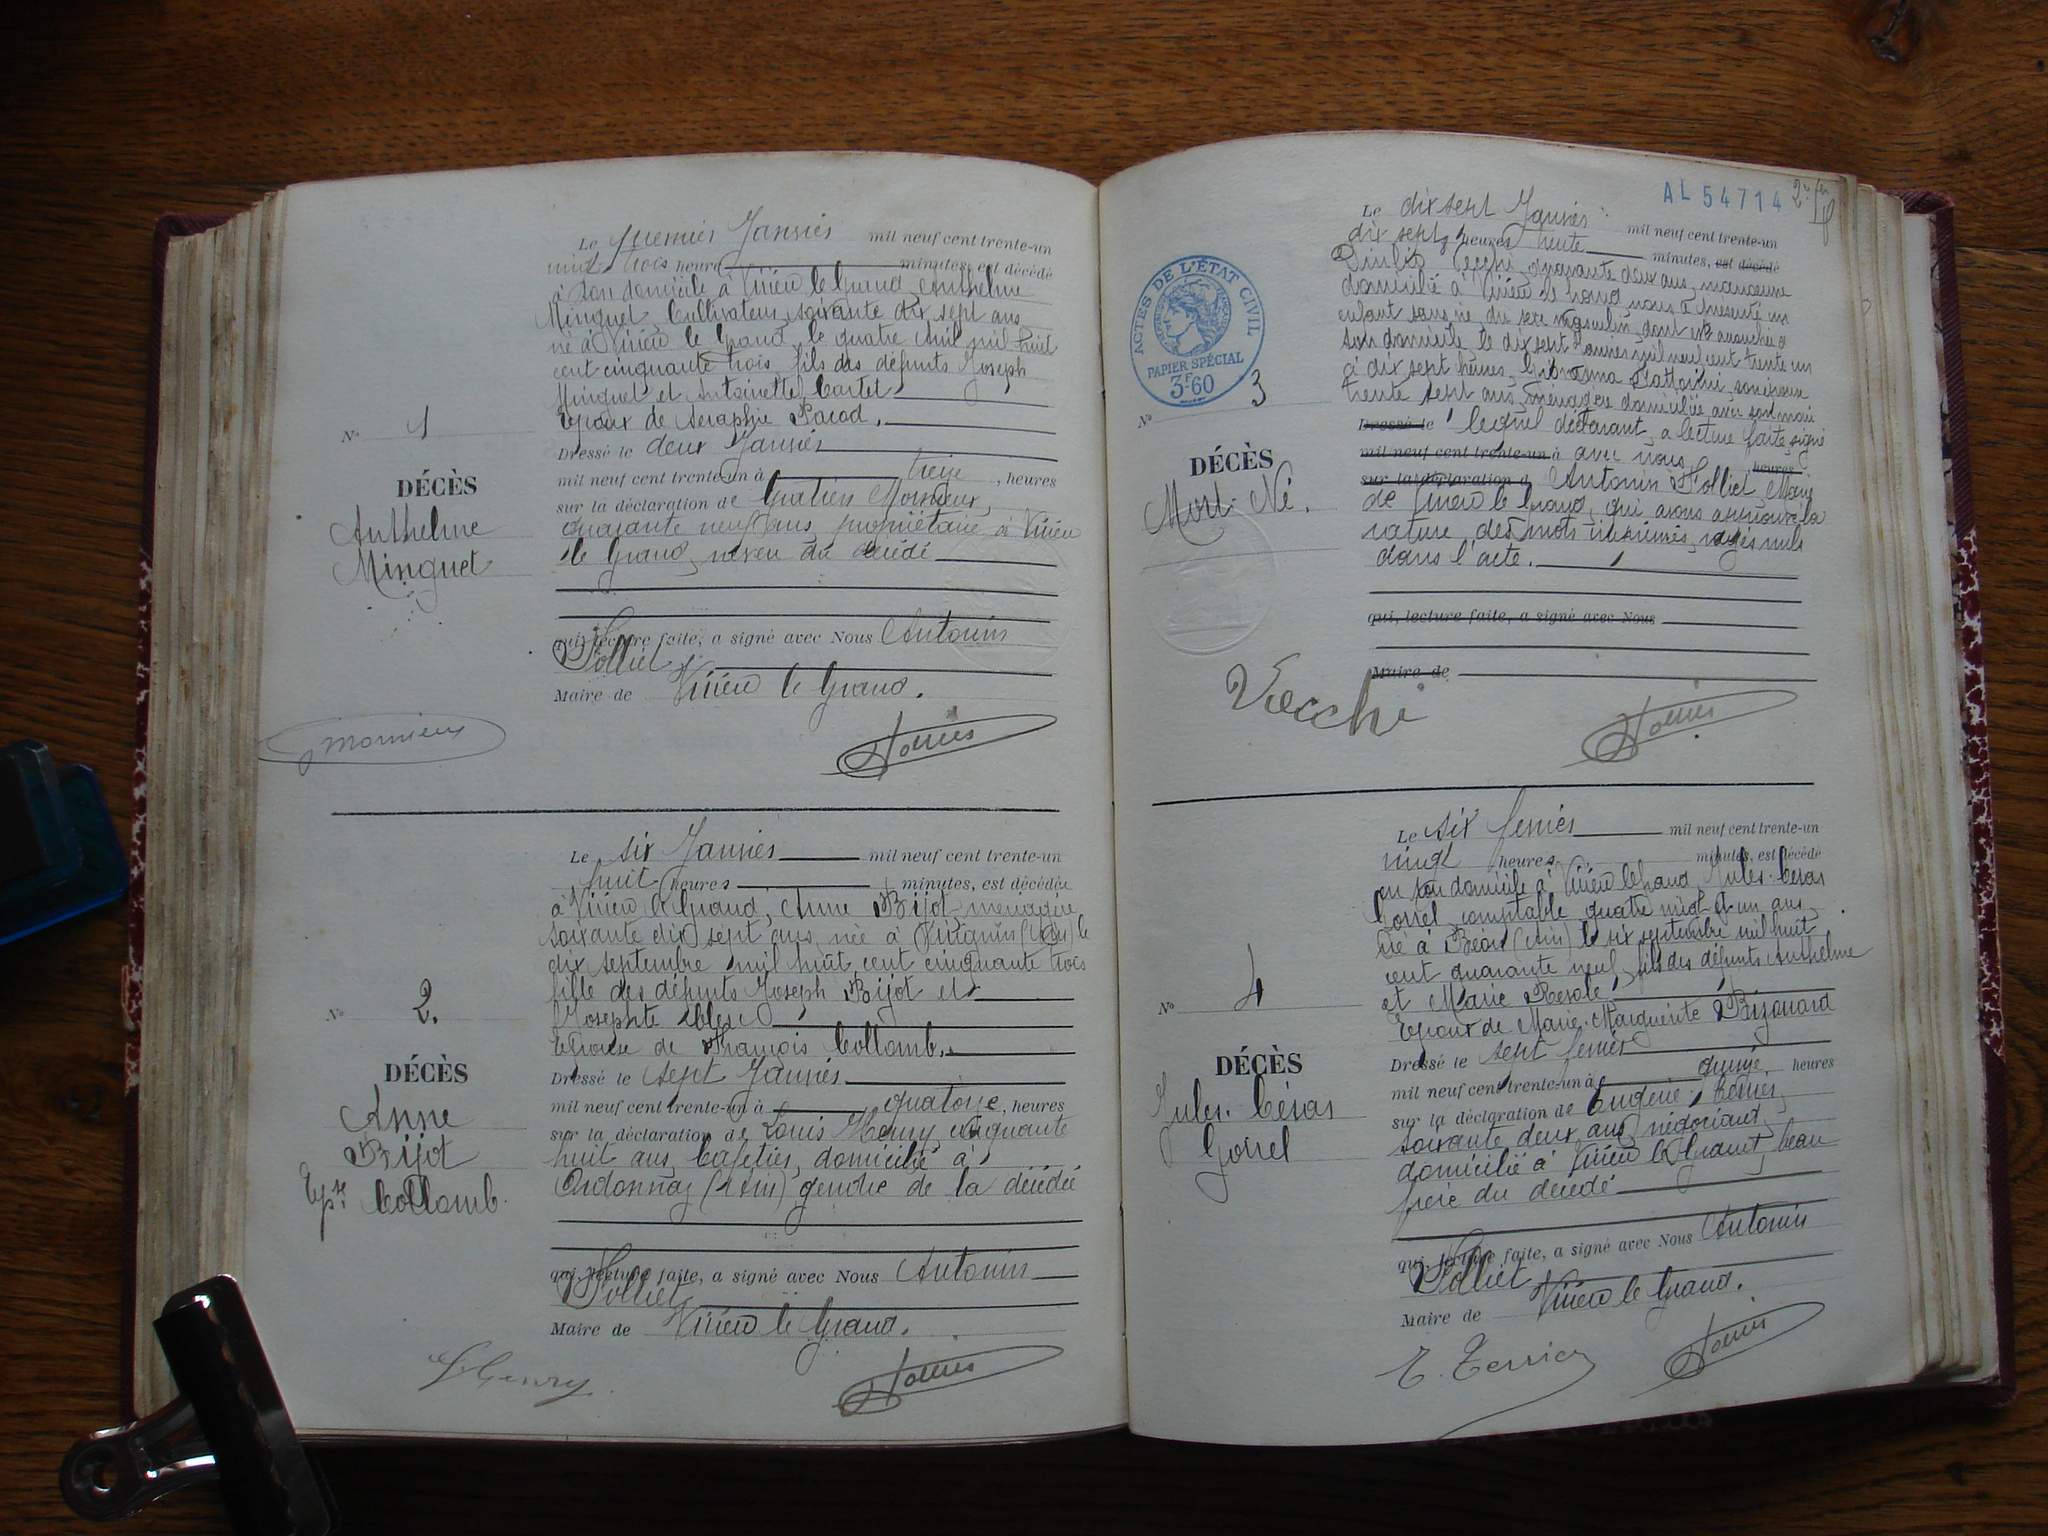 Le premier Janvier mil neuf cent trente-un
vingt trois heures minutes, est décédé
à son domicile à Virieu le Grand Anthelme
Minguet, Cultivateur, soixante dix sept ans
né à Virieu le Grand le quatre mil huit
cent cinquante trois, fils des défunts Joseph
Minguet et Antoinette Cartet
Epoux de Séraphie Pacod.
Dressé le deux Janvier
mil neuf cent trente-un à treize, heures
sur la déclaration de Monnieux,
quarante neuf ans, propriétaire à Virieu
le Grand, neveu du décédé
qui, lecture faite, a signé avec Nous Antonin
Folliet,
Maire de Virieu le Grand.
N° 1
DÉCÈS
Anthelme
Minguet
Le six Janvier mil neuf cent trente-un
huit heures minutes, est décédée
à Virieu le Grand, Anne Bijot, ménagère
soixante dix sept ans, née à (Ain) le
dix septembre mil huit cent cinquante trois
fille des défunts Joseph Bijot et
Josephte
Epouse de François Collomb.
Dressé le sept Janvier
mil neuf cent trente-un à quatorze, heures
sur la déclaration de Louis Henry, cinquante
huit ans, Cafetier, domicilié à
Ordonnaz (Ain) gendre de la décédée
qui, lecture faite, a signé avec Nous Antonin
Folliet,
Maire de Virieu le Grand.
N° 2.
DÉCÈS
Anne
Bijot
Epse Collomb.
L Henry
AL 54714
ACTES DE L'ÉTAT CIVIL
PAPIER SPÉCIAL
3F60
Le dix sept Janvier mil neuf cent trente-un
dix sept heures trente minutes, est décédé
Vecchi, quarante deux ans, manoeuvre
domicilié à Virieu le Grand nous a présenté un
enfant sans vie du sexe masculin, dont est accouchée à
son domicile le dix sept Janvier mil neuf cent trente un
à dix sept heures, son épouse
trente sept ans, ménagère domiciliée avec son mari
Dressé le lequel déclarant, a lecture faite, signé
mil neuf cent trente-un à avec nous, heures
sur la déclaration d Antonin Folliet, Maire
de Virieu le Grand, qui avons approuvé la
rature des mots imprimés, rayés nuls
dans l'acte.
qui, lecture faite, a signé avec Nous
Maire de
N° 3
DÉCÈS
Mort-Né.
Vecchi
Le six fevrier mil neuf cent trente-un
vingt heures minutes, est décédé
en son domicile à Virieu le Grand, Jules-César
Gorrel, comptable, quatre vingt et un ans,
né à Béon (Ain) le six septembre mil huit
cent quarante neuf, fils des défunts Anthelme
et Marie
Epoux de Marie-Marguerite Brizouard
Dressé le sept fevrier
mil neuf cent trente-un à quinze, heures
sur la déclaration de Eugène Terrier,
soixante deux ans, négociant,
domicilié à Virieu le Grand, beau
frère du décédé
qui, lecture faite, a signé avec Nous Antonin
Folliet
Maire de Virieu le Grand.
N° 4
DÉCÈS
Jules-César
Gorrel
E. Terrier